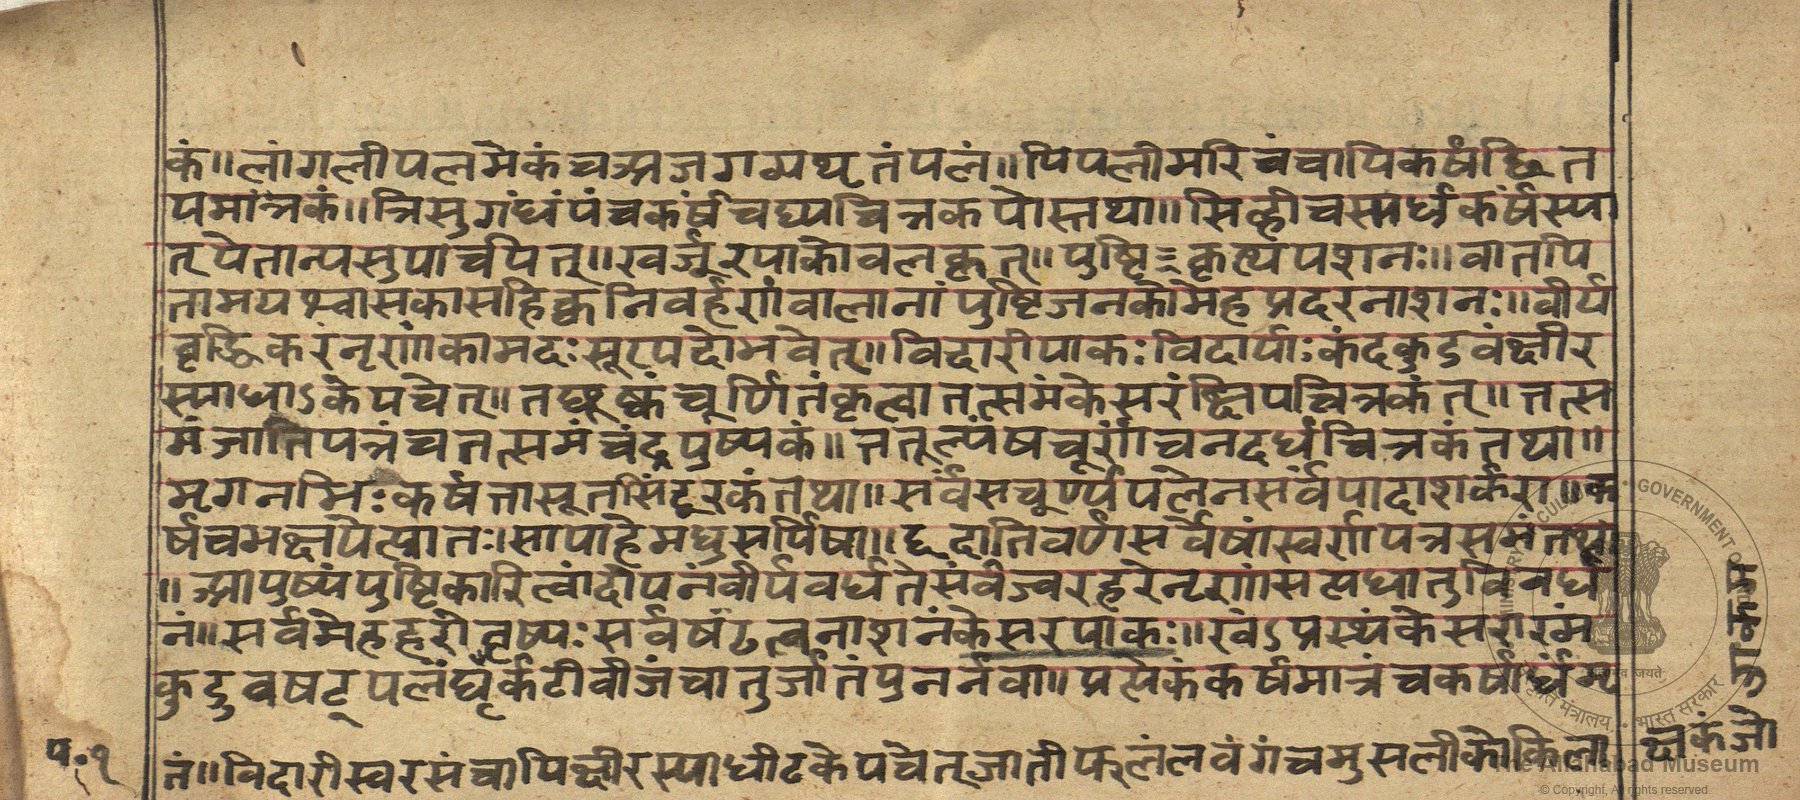 कं॥लांगलीपलमेकंचअजगव्यथृतंपलं॥पिपलीमरिचंचापिकर्षंछित
पमांत्रकं॥त्रिसुगंधंपंचकर्षंचघ्पचित्रकपोस्तथा॥सिह्लीचस्पार्धकर्षंस्पा
त्पेतान्पसुपाचपित्॥खर्जूरपाकोवलकृत्॥पुष्टिकृत्यंपशनः॥वातपि
तामयश्वासकासहिक्कनिवर्हणंवालानांपुष्टिजनकोमेहप्रदरनाशनः॥वीर्प
वृद्धिकरंनृणांकामदःसूरपदोमवेत्॥विदारीपाकःविदार्पाःकंदकुडवंक्षीर
स्पाधाऽकेपचेत्॥तछुष्कंचूर्णितंकृत्वातत्समंकेसरंक्षिपचित्रकंत्॥तत्स
मंजातिपत्रंचतत्समंचंद्रपुष्यकं॥ततूल्पंषचूर्णंचतदर्घंचित्रकंतथा॥
मृगनमिःकर्षंतासूतसिंदूरकंतथा॥सर्वंसचूर्ण्पपलेनसर्वंपादाशर्करा॥क
र्षंचमक्षपेत्प्रातः।सापाहेमधुसर्पिषा॥ददातिवर्णसर्वेषांस्वर्णपत्रसमंतथा
॥आपुष्यंपुष्टिकारित्वांदीपनंवीर्पवर्घतेसर्वज्वरहरेन्टणांसप्तघातुविवर्घ
नं॥सर्वमेहहरोतृष्यःसर्वषंढत्वनाशनंकेसरपाकः॥खंऽप्रस्थंकेसरारंमं
कुडुवषट्पलंघृर्कटीवीजंचातुर्जातंपुनर्नवा॥प्रत्पेकंकर्षमात्रंचकर्षार्ध
नं॥विदारीस्वरसंचापिक्षीरस्पाधीढकेपचेत्जातीफलंलवंगंचमुसलीकोकिला
क्षकंजो
प॰१
The Allahabad Museum
© Copyright, All rights reserved.